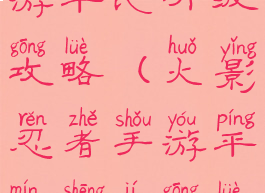 游平民升级
gōng lüè huǒ yǐng
攻略（火影
rěn zhě shǒu yóu píng
忍者手游平
mín shēng jí gōng lüè